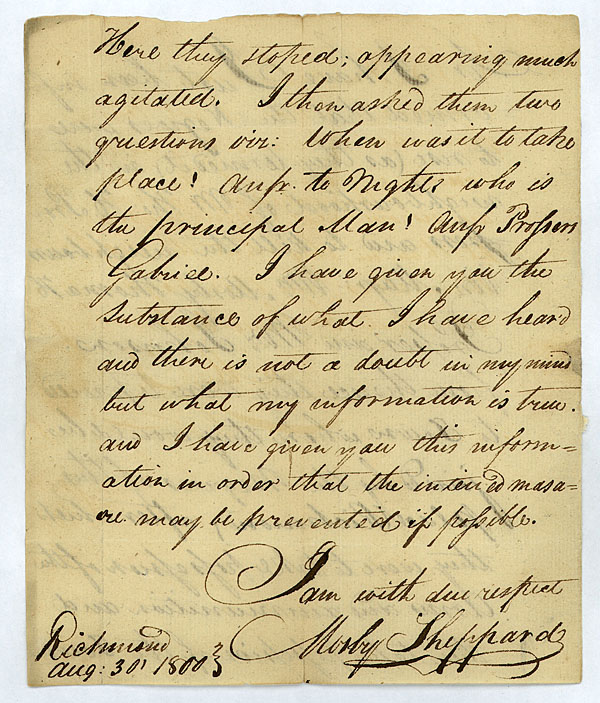 Here they stoped; appearing much
agitated. I then asked them two
questions viz: When was it to take
place? Ansr. to Nights who is
the principal Man? Ansr Prossers
Gabriel. I have given you the
substance of what I have heard
and there is not a doubt in my mind
but what my information is true.
and I have given you this inform=
ation in order that the intended masa=
cre may be prevented if possible.
I am with due respect
Mosby Sheppard
Richmond
Aug: 30th 1800